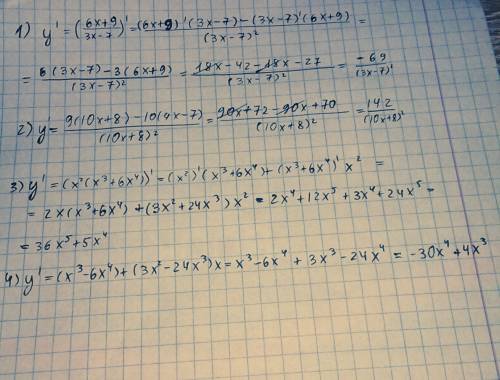 1) y' = (6x+9 / 3x-7)' = (6x+9)'(3x-7)-(3x-7)'(6x+9) / (3x-7)² =
= 6(3x-7)-3(6x+9) / (3x-7)² = 18x-42-18x-27 / (3x-7)² = -69 / (3x-7)²
2) y' = 9(10x+8)-10(9x-7) / (10x+8)² = 90x+72-90x+70 / (10x+8)² = 142 / (10x+8)²
3) y' = (x²(x³+6x⁴))' = (x²)'(x³+6x⁴)+(x³+6x⁴)'x² =
= 2x(x³+6x⁴)+(3x²+24x³)x² = 2x⁴+12x⁵+3x⁴+24x⁵ =
= 36x⁵+5x⁴
4) y' = (x³-6x⁴)+(3x²-24x³)x = x³-6x⁴+3x³-24x⁴ = -30x⁴+4x³